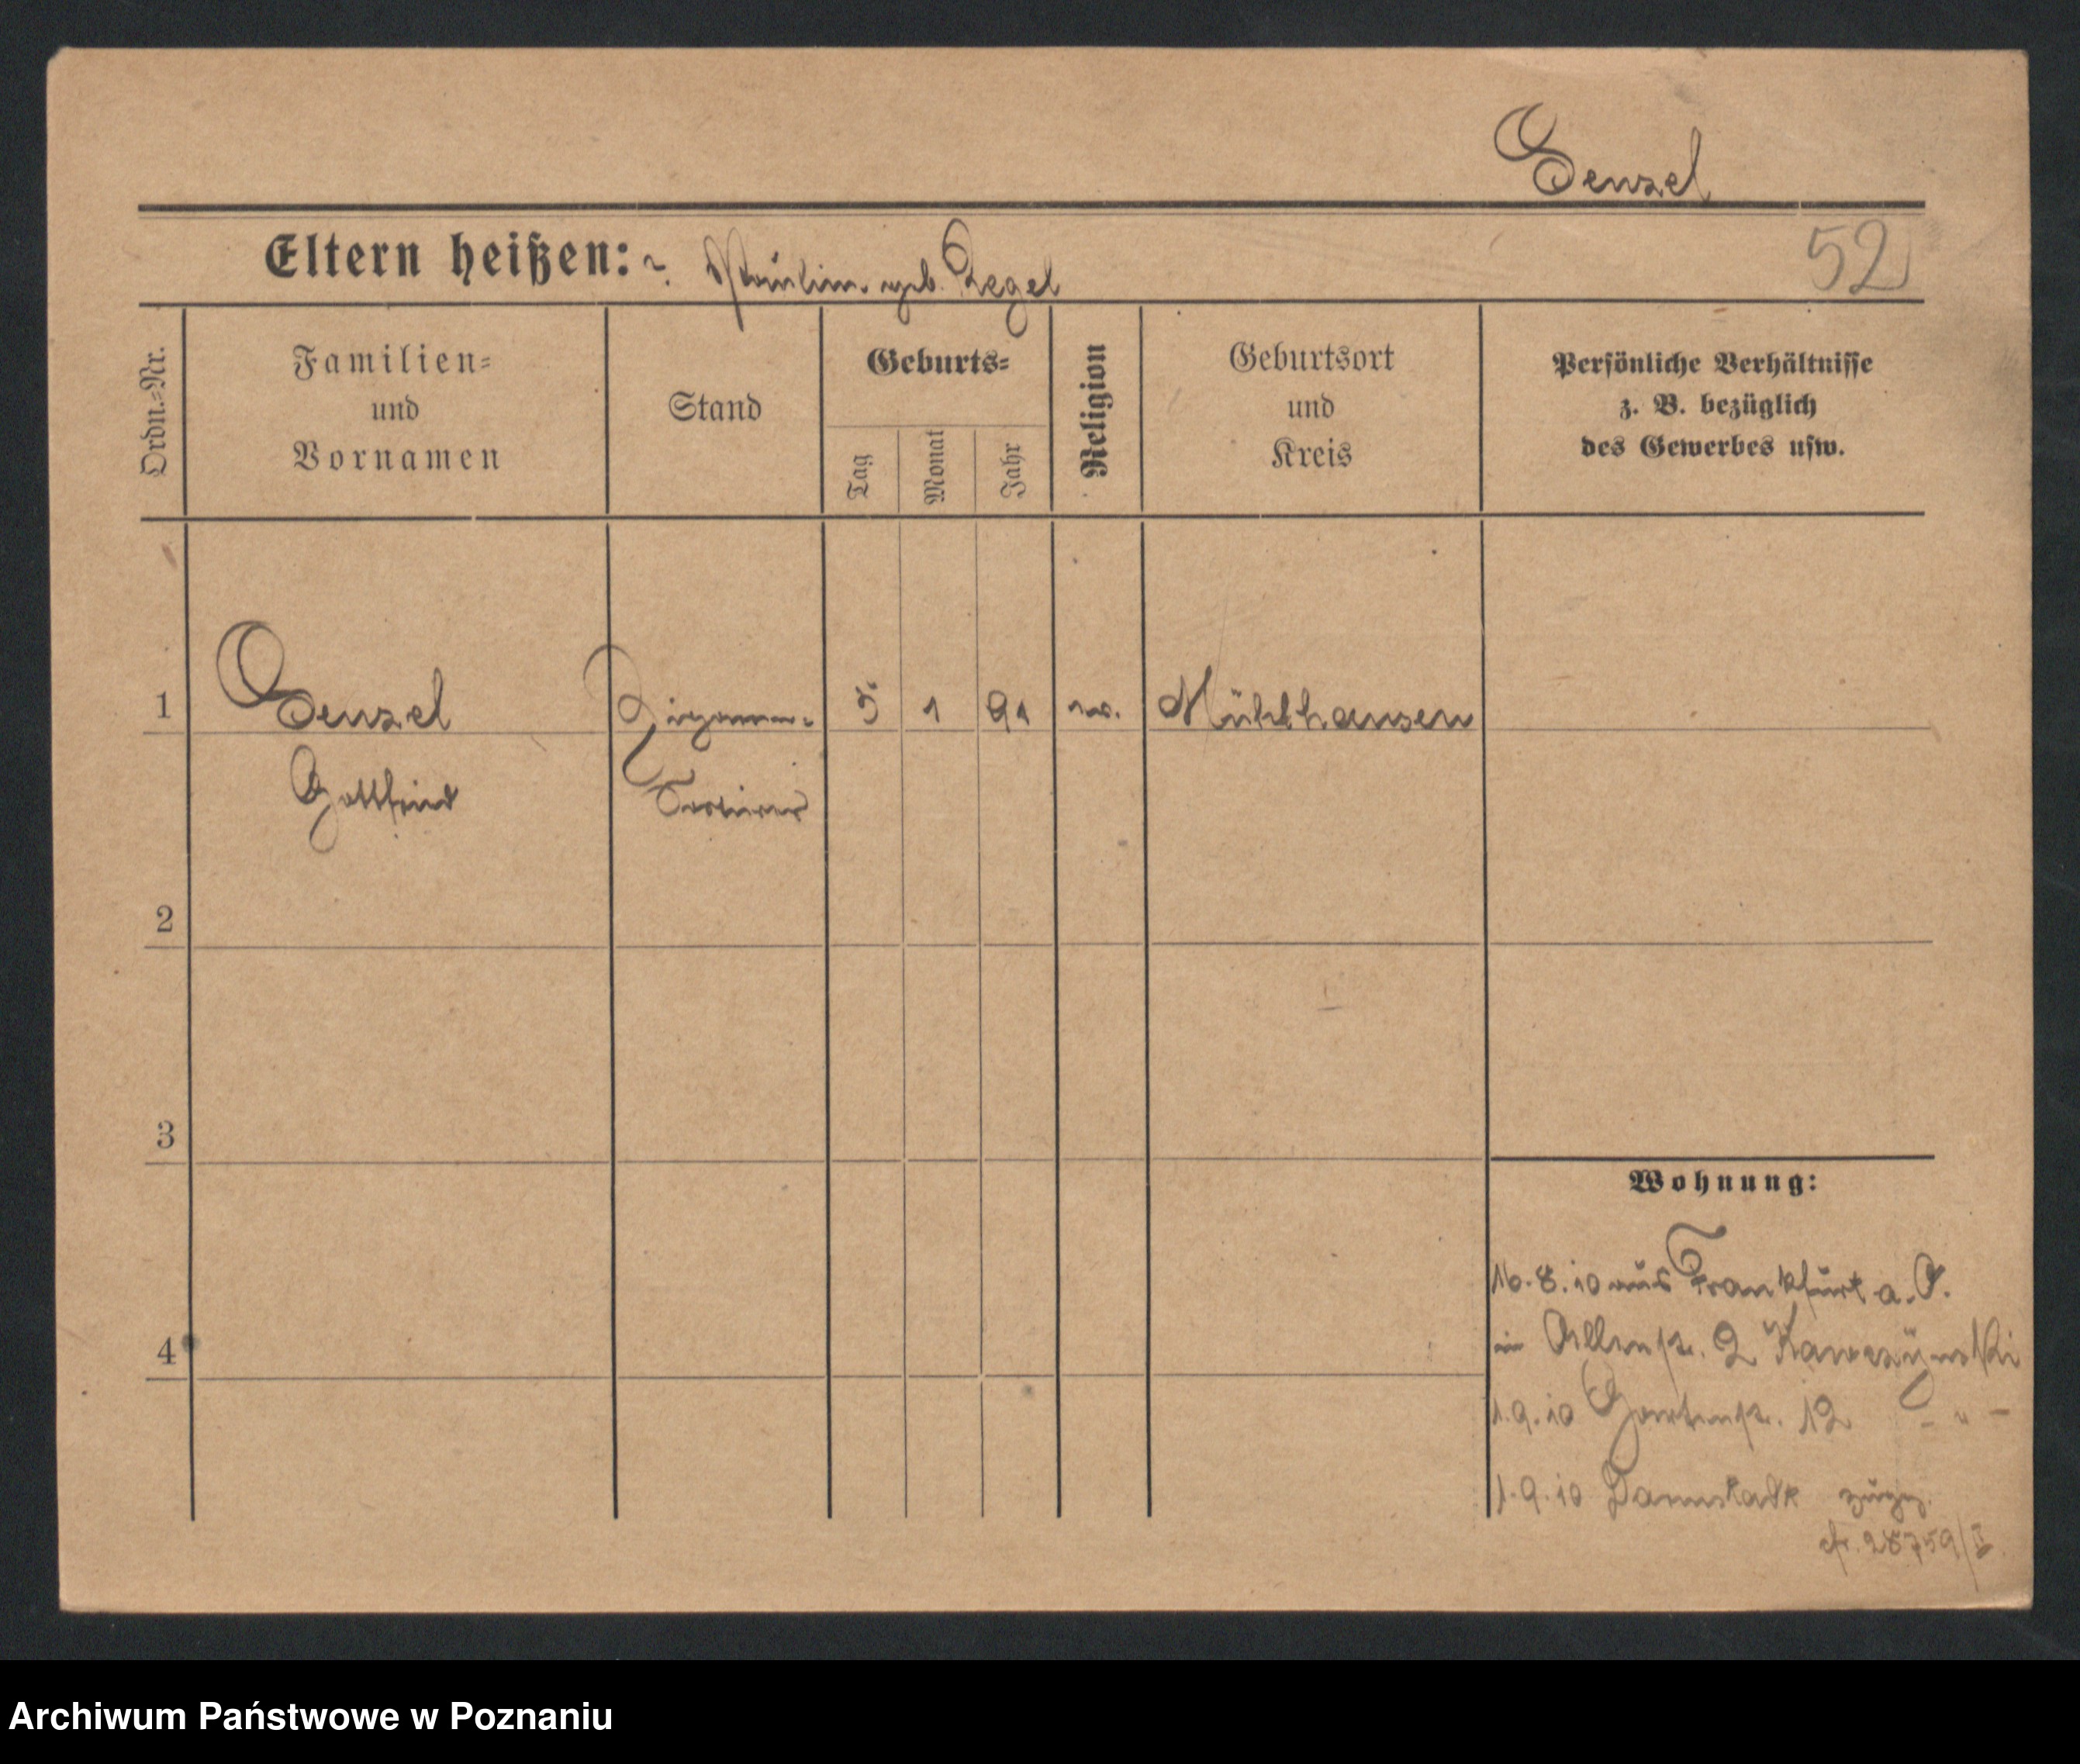 Genzel
Eltern heißen: ~. Paulin. geb. Regel
52
Ordn.-Nr.
Familien-
und
Vornamen
Stand
Geburts-
Tag
Monat
Jahr
Religion
Geburtsort
und
Kreis
Persönliche Verhältnisse
z. B. bezüglich
des Gewerbes usw.
1 Genzel Zigarren- 5 1 91 ev. Mühlhausen
Gottfried Sortierer
2
3
4
Wohnung:
16.8.10 aus Frankfurt a. O.
in 2
1.9.10 Gartenstr. 12 - " -
1.9.10 Darmstadt
cfr. 28759/II
Archiwum Państwowe w Poznaniu